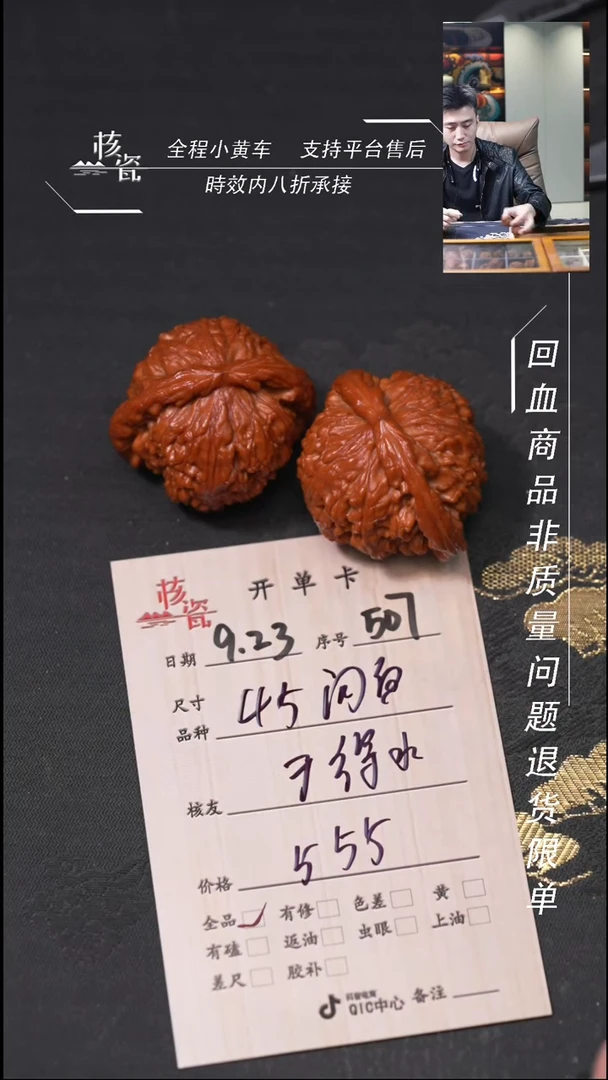 核瓷
全程小黄车 支持平台售后
時效内八折承接
回血商品非质量问题退货限单
核瓷
开单卡
日期 9.23 序号 507
尺寸
品种 45闷白
核友 于得水
价格 555
全品 有修 色差 黄
有磕 返油 虫眼 上油
差尺 胶补
抖音电商
QIC中心 备注